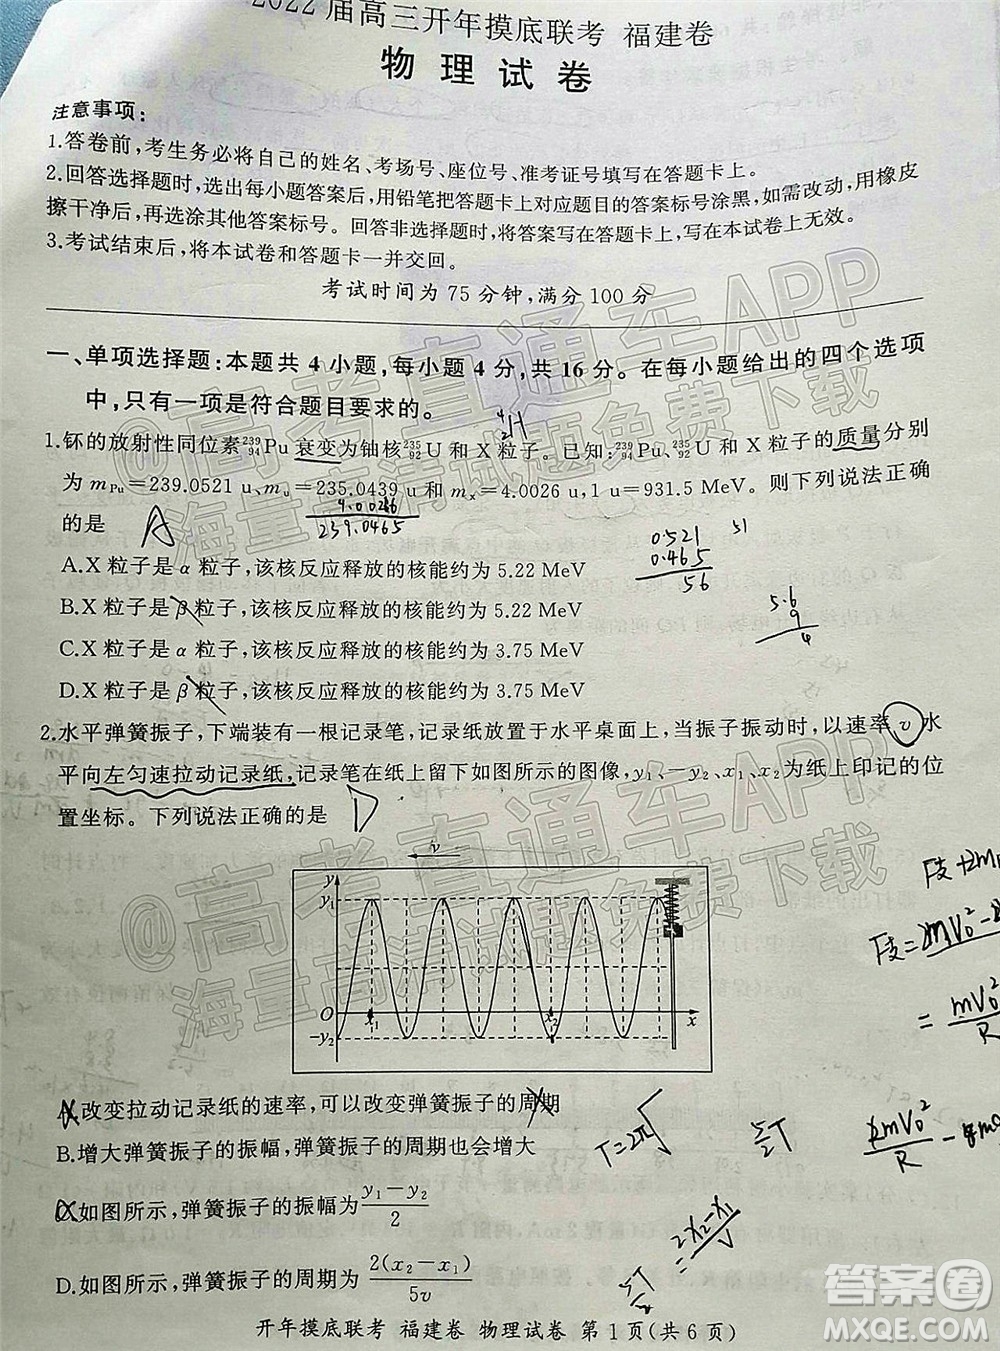 2022届高三开年摸底联考 福建卷
物 理 试 卷
注意事项:
1.答卷前,考生务必将自己的姓名、考场号、座位号、准考证号填写在答题卡上。
2.回答选择题时,选出每小题答案后,用铅笔把答题卡上对应题目的答案标号涂黑,如需改动,用橡皮
擦干净后,再选涂其他答案标号。回答非选择题时,将答案写在答题卡上,写在本试卷上无效。
3.考试结束后,将本试卷和答题卡一并交回。
考试时间为 75 分钟,满分 100 分
一、单项选择题:本题共 4 小题,每小题 4 分,共 16 分。在每小题给出的四个选项
中,只有一项是符合题目要求的。
4
2H
1.钚的放射性同位素²³⁹₉₄Pu 衰变为铀核²³⁵₉₂U 和 X 粒子。已知:²³⁹₉₄Pu、²³⁵₉₂U 和 X 粒子的质量分别
为 mPu=239.0521 u、mu=235.0439 u 和 mx=4.0026 u,1 u=931.5 MeV。则下列说法正确
的是 A
4.0026
239.0465
0.521
0.465
56
51
A.X 粒子是 α 粒子,该核反应释放的核能约为 5.22 MeV
B.X 粒子是 β 粒子,该核反应释放的核能约为 5.22 MeV
5.6
9
4
C.X 粒子是 α 粒子,该核反应释放的核能约为 3.75 MeV
D.X 粒子是 β 粒子,该核反应释放的核能约为 3.75 MeV
2.水平弹簧振子,下端装有一根记录笔,记录纸放置于水平桌面上,当振子振动时,以速率 v 水
平向左匀速拉动记录纸,记录笔在纸上留下如图所示的图像,y₁、−y₂、x₁、x₂为纸上印记的位
置坐标。下列说法正确的是 D
v
y
y₁
O
x₁
x₂
x
−y₂
A.改变拉动记录纸的速率,可以改变弹簧振子的周期
B.增大弹簧振子的振幅,弹簧振子的周期也会增大
T=2π√
5/2T
C.如图所示,弹簧振子的振幅为 (y₁−y₂)/2
D.如图所示,弹簧振子的周期为 2(x₂−x₁)/5v
mV₀²/R
开年摸底联考 福建卷 物理试卷 第 1 页(共 6 页)
@高考直通车APP
海量高清试题免费下载
@高考直通车APP
海量高清试题免费下载
答案圈
MXQE.COM